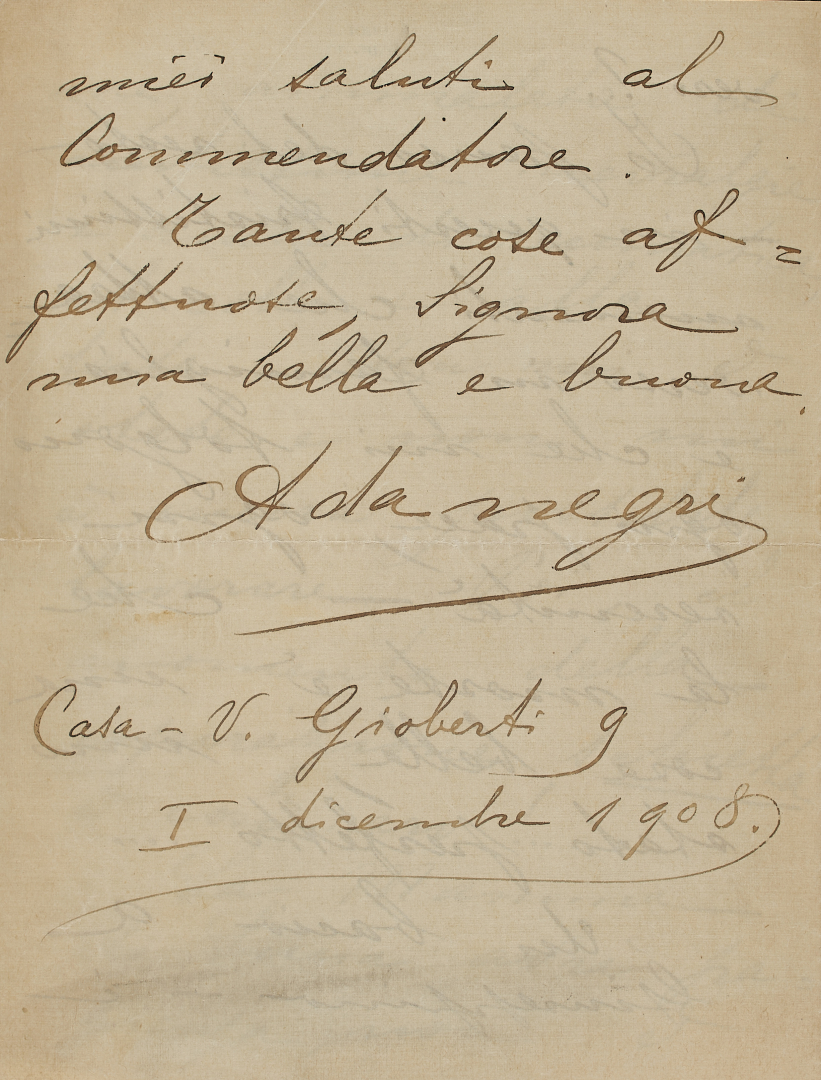 miei saluti al
Commendatore.
Tante cose af=
fettuose, Signora
mia bella e buona.
Ada Negri
Casa - V. Gioberti 9
I dicembre 1908.